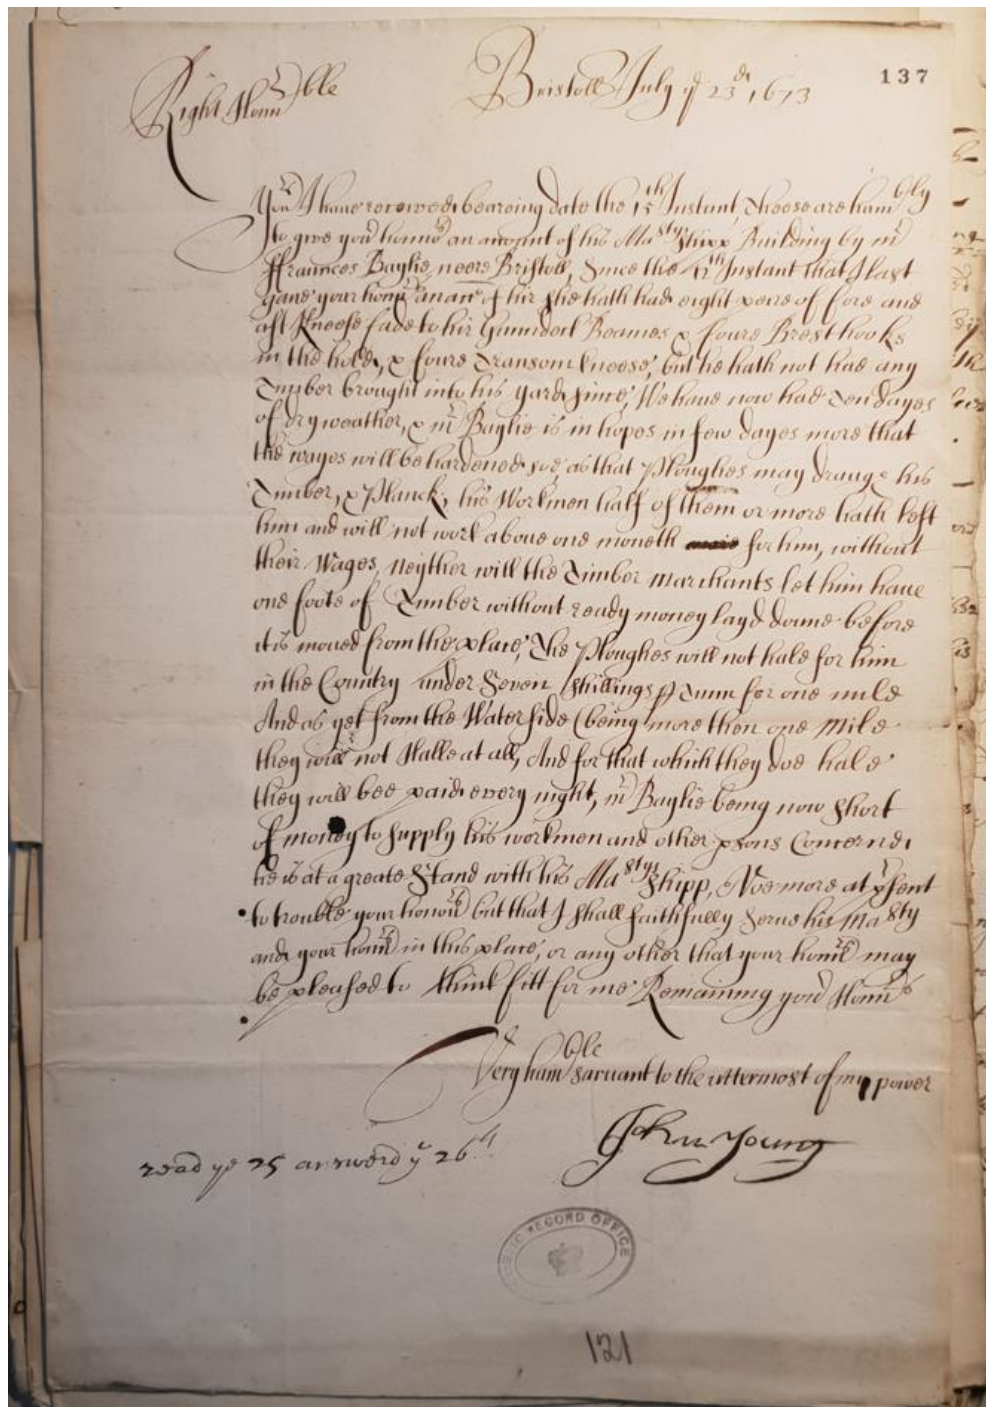 137
Right Honn^ble Bristoll July y^e 23^d 1673
You^rs I haue receiued bearing date the 15^th Instant, Theese are hum^bly
to giue you^r honn^rs an account of his Ma^stys Shipp Building by m^r
ffraunces Baylie neere Bristoll, Since the 12^th Instant that I last
gaue your hon^rs an acc^t of hir she hath had eight peece of fore and
aft Kneese fade to hir Gunndeck Beames & foure Brest hooks
in the hold, & foure Transom kneese, but he hath not had any
Timber brought into his yard since, We haue now had Ten dayes
of dry weather, & m^r Baylie is in hopes in few dayes more that
the wayes will be hardened soe as that Ploughes may drauge his
Timber, & Planck, his Workmen half of them or more hath left
him and will not work aboue one moneth for him, without
their Wages, neyther will the Timber marchants let him haue
one foote of Timber without ready money layd doune before
it is moued from the place, The Ploughes will not hale for him
in the Country under Seven Shillings p Tunn for one mile
And as yet from the Waterside (being more then one Mile
they will not Halle at all, And for that which they doe hale
they will bee paid every night, m^r Baylie being now short
of money to supply his workmen and other psons Concerned
he is at a greate Stand with his Ma^stys Shipp, Noe more at p^rsent
to trouble your honou^rs but that I shall faithfully Serue his Ma^sty
and your hon^rs in this place, or any other that your hon^rs may
be pleased to think fitt for me Remaining you^r Honn^rs
Very hum^ble saruant to the uttermost of my power
John Young
read ye 25 answerd y^e 26^th
PUBLIC RECORD OFFICE
121